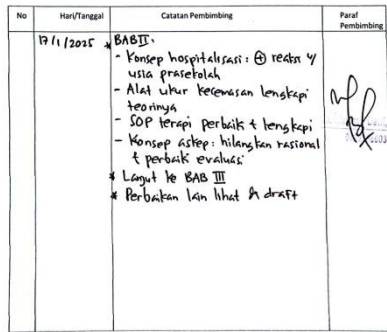 No Hari/Tanggal Catatan Pembimbing Paraf Pembimbing
17/1/2025 * BAB II.
- Konsep hospitalisasi : ⊕ reaksi u/
usia prasekolah
- Alat ukur kecemasan lengkapi
teorinya
- SOP terapi perbaik + lengkapi
- Konsep askep : hilangkan rasional
+ perbaiki evaluasi
* Lanjut ke BAB III
* Perbaikan lain lihat di draft